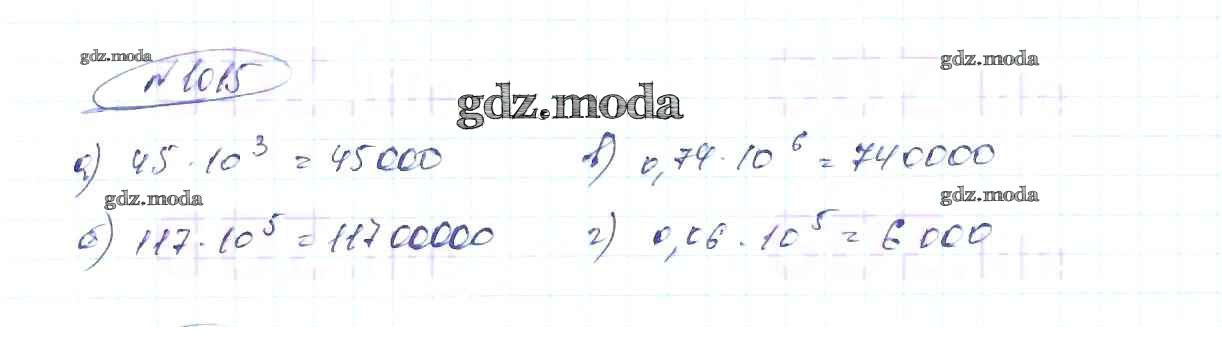 gdz.moda
№ 1015
gdz.moda
gdz.moda
а) 45 · 10³ = 45000
в) 0,74 · 10⁶ = 740000
gdz.moda
gdz.moda
б) 117 · 10⁵ = 11700000
г) 0,06 · 10⁵ = 6000